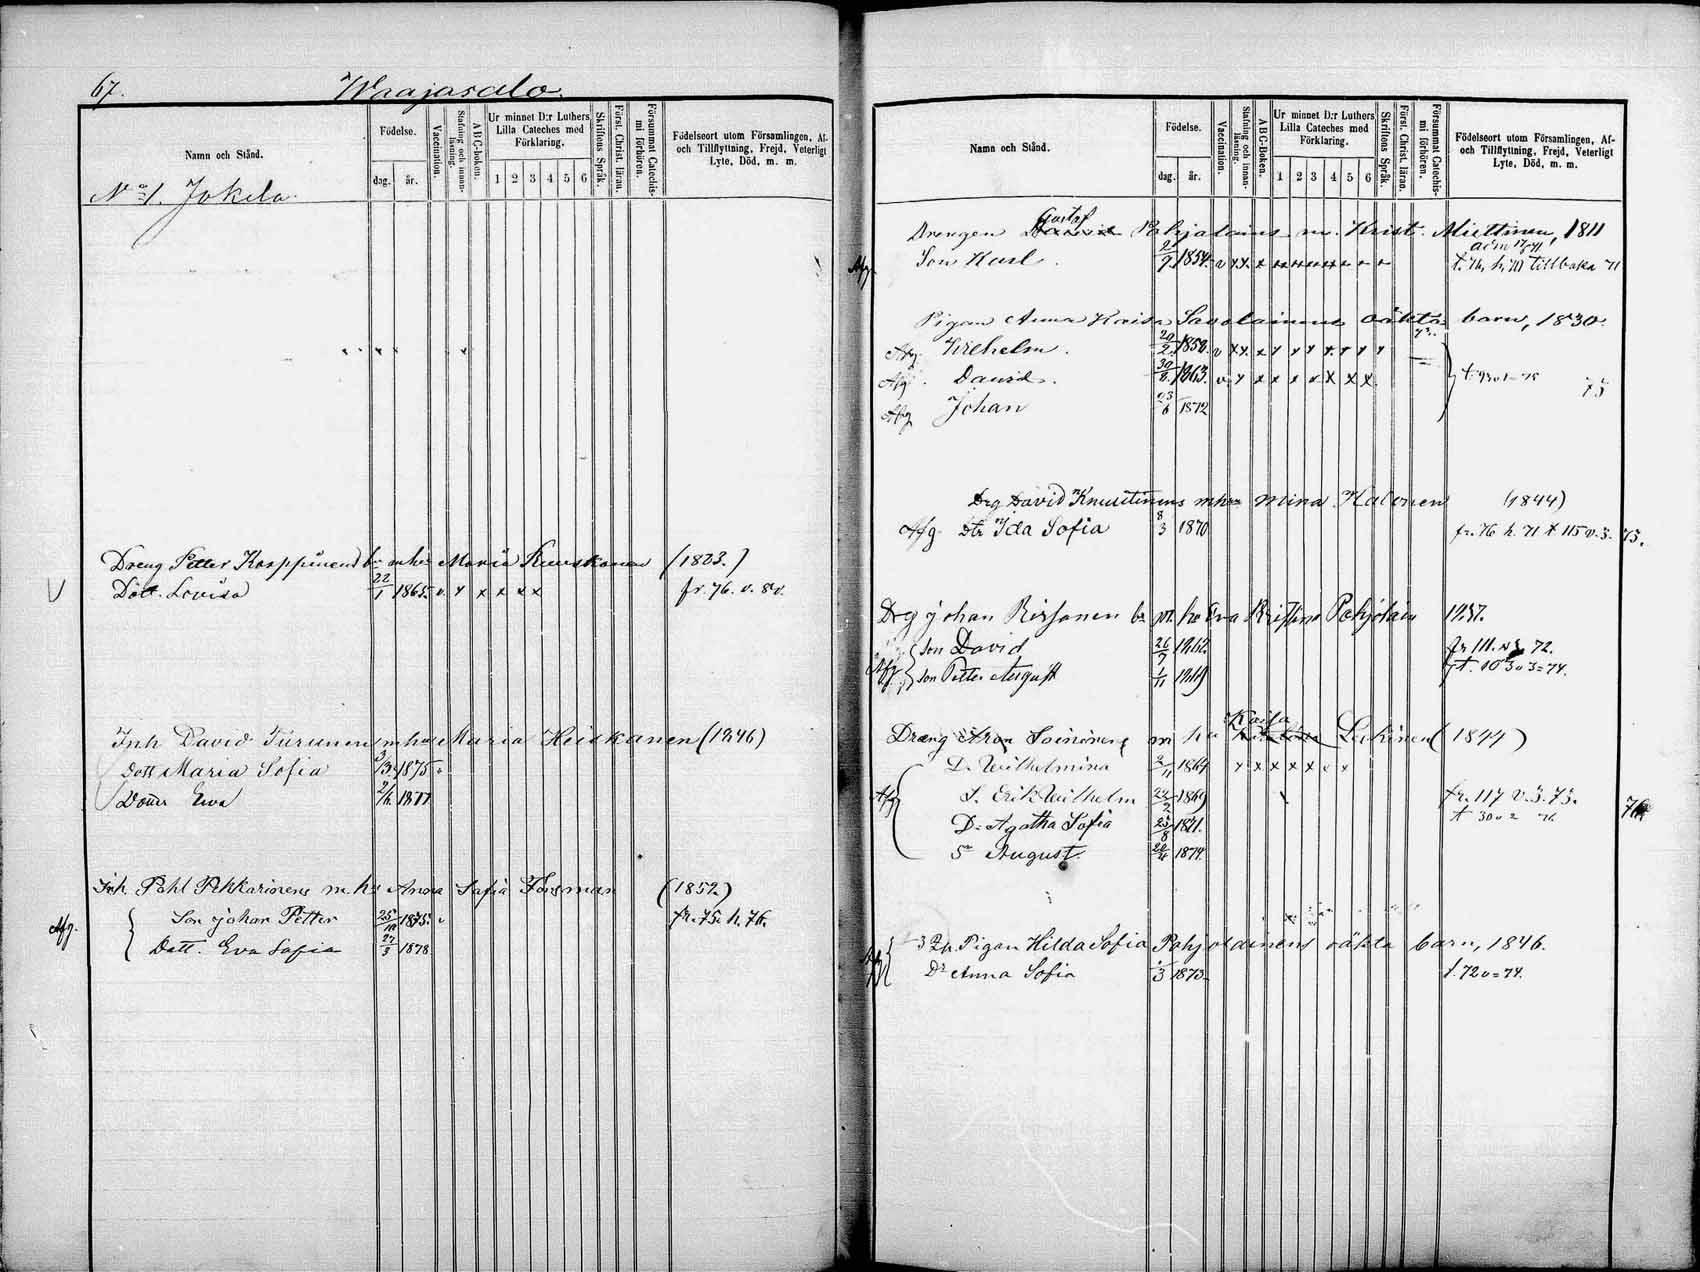 67. Waajasalo.
Namn och Stånd.
Födelse.
dag. år.
Vaccination.
Stafning och innan-läsning.
A B C-boken.
Ur minnet D:r Luthers Lilla Cateches med Förklaring.
1 2 3 4 5 6
Skriftens Språk.
Först. Christ. läran.
Försummat Catechismi förhören.
Födelseort utom Församlingen, Af- och Tillflyttning, Frejd, Veterligt Lyte, Död, m. m.
No 1. Jokela
Dreng Petter Korppinens bn mhu Maria Ruuskanen (1823.)
Dött. Lovisa 22/1 1865. v. x x x x x fr. 76. v. 80.
Inh David Turunens mhu Maria Heiskanen (1846)
Dott Maria Sofia 3/3 1875 v
Dotter Eva 2/6 1877
Inh. Påhl Pekkarinens m. hu Anna Sofia Forsman (1852)
Afg. Son Johan Petter 25/10 1875 v fr. 75. h. 76.
Dott. Eva Sofia 27/3 1878
Namn och Stånd.
Födelse.
dag. år.
Vaccination.
Stafning och innan-läsning.
A B C-Boken.
Ur minnet D:r Luthers Lilla Cateches med Förklaring.
1 2 3 4 5 6
Skriftens Språk.
Först. Christ. läran.
Försummat Catechismi förhören.
Födelseort utom Församlingen, Af- och Tillflyttning, Frejd, Veterligt Lyte, Död, m. m.
Gustaf
Drengen David Pohjalains m. Krist. Miettinen, 1811
Afg. Son Karl. 2/9 1854. v x x x tillbaka 71
Pigan Anna Kaisa Savolainens oäkta barn, 1830.
Afg. Wilhelm. 20/2 1852. v x x x x x x x x x
Afg. David. 30/8 1863. v x x x x x x x x 75
Afg Johan 23/6 1872
Drg David Knuutinens mhu Mina Halonen (1844)
Afg. Dtr Ida Sofia 8/3 1870 fr. 76 h. 71 t 115 v. 3. 75.
Drg Johan Rissanen bn m. hu Eva Kristina Pohjolain 1837.
Son David 26/9 1862. fr 111. v 3 72.
Afg. Son Petter August 1/11 1869 t. 103 v 3 = 74.
Kaisa
Dräng Aron Soinonens m hu Leskinen (1844)
D. Wilhelmina 2/11 1864 x x x x x x x
Afg S. Erik Wilhelm 24/2 1869 fr. 117 v. 3. 73. 76
D: Agatha Sofia 25/8 1871. t 30 v 2 76
Sn August. 28/4 1874.
Afg Pigan Hilda Sofia Pohjolainens oäkta barn, 1846.
Dr Anna Sofia 1/3 1873 t. 72 v = 74.